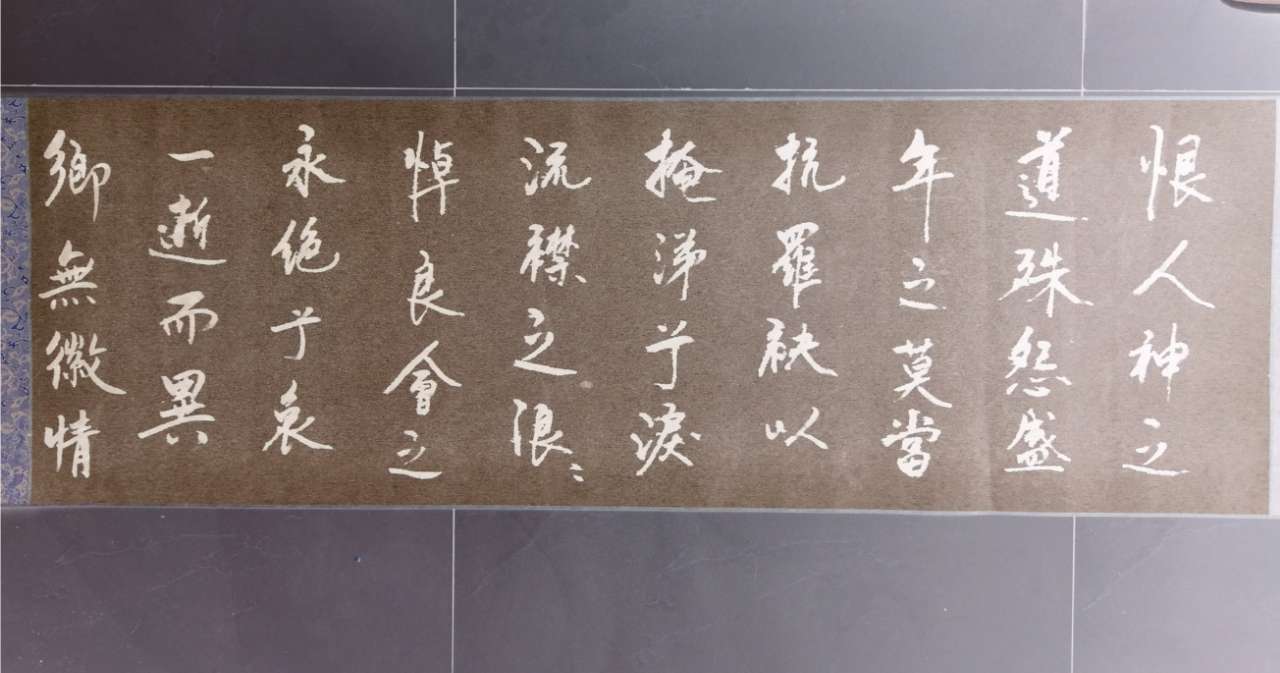 恨人神之
道殊怨盛
年之莫當
抗羅袂以
掩涕兮淚
流襟之浪〻
悼良會之
永絶兮哀
一逝而異
鄉無徽情